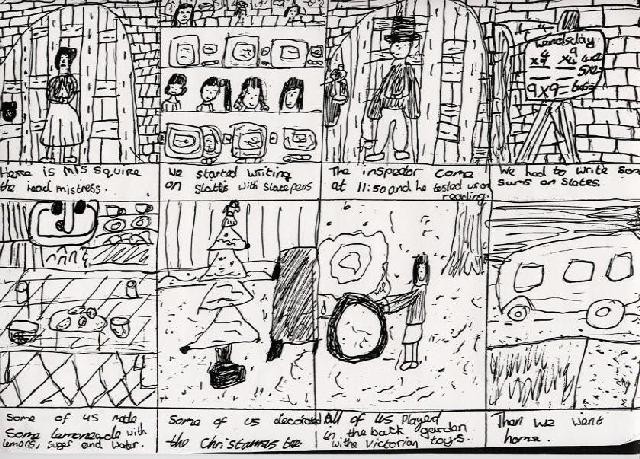 Here is Mis Squire
the head mistress.
We started writing
on slates with slate pens
The inspector came
at 11:50 and he tested us on
reading.
Wendsday
We had to write som
sums on slates.
Some of us made
Some lemoneade with
lemons, suger and water.
Some of us decorated
the Christamas tree
All of us played
in the back garden
with the Victorian toys.
Then we went
home.